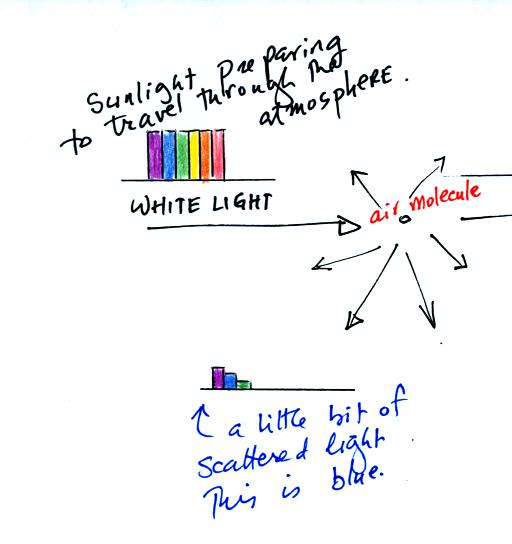 Sunlight preparing
to travel through the
atmosphere.
WHITE LIGHT
air molecule
a little bit of
scattered light
This is blue.